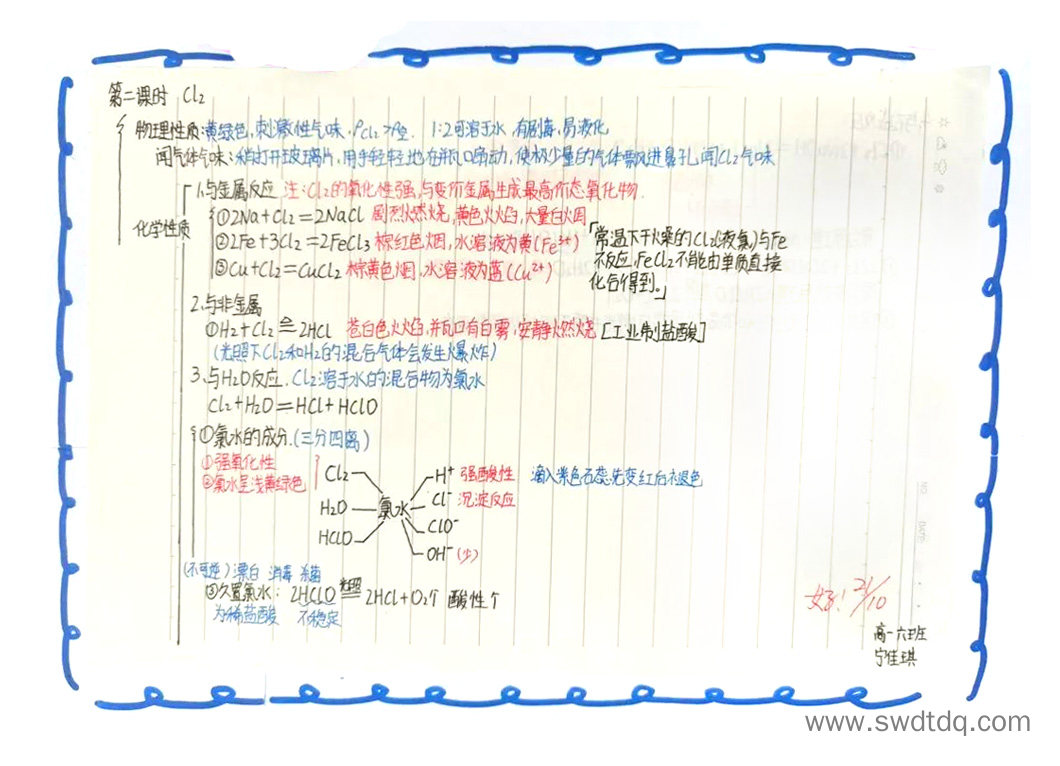 第二课时 Cl2
物理性质:黄绿色,刺激性气味.ρCl2>ρ空. 1:2可溶于水 有剧毒,易液化
闻气体气味:稍打开玻璃片,用手轻轻地在瓶口扇动,使极少量的气体飘进鼻孔,闻Cl2气味
化学性质
1.与金属反应 注:Cl2的氧化性强,与变价金属生成最高价态氧化物.
①2Na+Cl2=2NaCl 剧烈燃烧,黄色火焰,大量白烟
②2Fe+3Cl2=2FeCl3 棕红色烟,水溶液为黄(Fe³⁺)
③Cu+Cl2=CuCl2 棕黄色烟,水溶液为蓝(Cu²⁺)
「常温下干燥的Cl2(液氯)与Fe
不反应,FeCl2不能由单质直接
化合得到。」
2.与非金属
①H2+Cl2=2HCl 苍白色火焰,瓶口有白雾,安静燃烧[工业制盐酸]
(光照下Cl2和H2的混合气体会发生爆炸)
3.与H2O反应.Cl2溶于水的混合物为氯水
Cl2+H2O=HCl+HClO
①氯水的成分.(三分四离)
①强氧化性
②氯水呈浅黄绿色
Cl2
H2O
HClO
氯水
H⁺ 强酸性 滴入紫色石蕊先变红后褪色
Cl⁻ 沉淀反应
ClO⁻
OH⁻(少)
(不可逆)漂白 消毒 杀菌
②久置氯水:2HClO 光照 2HCl+O2↑ 酸性↑
为稀盐酸 不稳定
好! 21/10
高一六班
宁佳琪
www.swdtdq.com